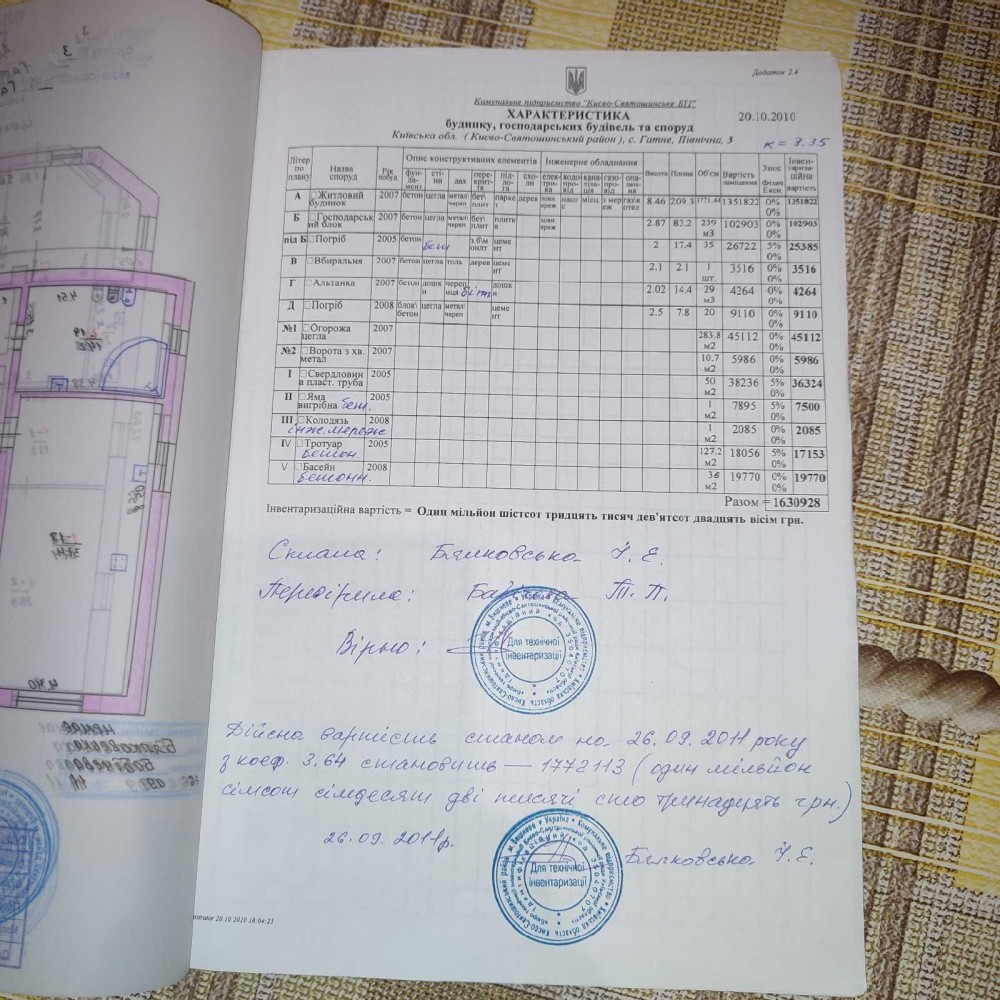 Додаток 2.4
Комунальне підприємство "Києво-Святошинське БТІ"
ХАРАКТЕРИСТИКА 20.10.2010
будинку, господарських будівель та споруд
Київська обл. ( Києво-Святошинський район ), с. Гатне, Північна, 3
к = 3.35
Літер по плану Назва споруд Рік побуд Опис конструктивних елементів Інженерне обладнання Висота Площа Об'єм Вартість заміщення Знос Фізич Екон. Інвентаризаційна вартість
фундамент стіни дах перекриття підлога сходи електрика водопровід каналізація газопровід опалення
А Житловий будинок 2007 бетон цегла метал череп бет плит парке дерев зовн. мереж насос місц. з мереж газ/котел 8.46 209.3 1771.44 1351822 0% 0% 1351822
Б Господарський блок 2007 бетон цегла метал череп бет плит плитка зовн. мереж 2.87 83.2 239 м3 102903 0% 0% 102903
під Б Погріб 2005 бетон бет з.б\м онлт цемент 2 17.4 35 26722 5% 0% 25385
В Вбиральня 2007 бетон цегла толь дерев цемент 2.1 2.1 1 шт. 3516 0% 0% 3516
Г Альтанка 2007 бетон дошки черепиця біт дошки 2.02 14.4 29 м3 4264 0% 0% 4264
Д Погріб 2008 блок\ бетон цегла метал череп цемент 2.5 7.8 20 9110 0% 0% 9110
№1 Огорожа цегла 2007 283.8 м2 45112 0% 0% 45112
№2 Ворота з хв. метал 2007 10.7 м2 5986 0% 0% 5986
I Свердловина пласт. труба 2005 50 м2 38236 5% 0% 36324
II Яма вигрібна бет. 2005 1 м2 7895 5% 0% 7500
III Колодязь інж.мереж 2008 1 м2 2085 0% 0% 2085
IV Тротуар бетон. 2005 127.2 м2 18056 5% 0% 17153
V Басейн бетонн. 2008 36 м2 19770 0% 0% 19770
Разом = 1630928
Інвентаризаційна вартість = Один мільйон шістсот тридцять тисяч дев'ятсот двадцять вісім грн.
Склала: Бялковська І. Е.
Перевірила: Т. П.
Вірно:
Для технічної інвентаризації
Дійсна вартість станом на 26.09.2011 року
з коеф. 3.64 становить — 1772113 (один мільйон
сімсот сімдесят дві тисячі сто тринадцять грн.)
26.09.2011р.
Бялковська І. Е.
Для технічної інвентаризації
istrator 20.10.2010 18:04:25